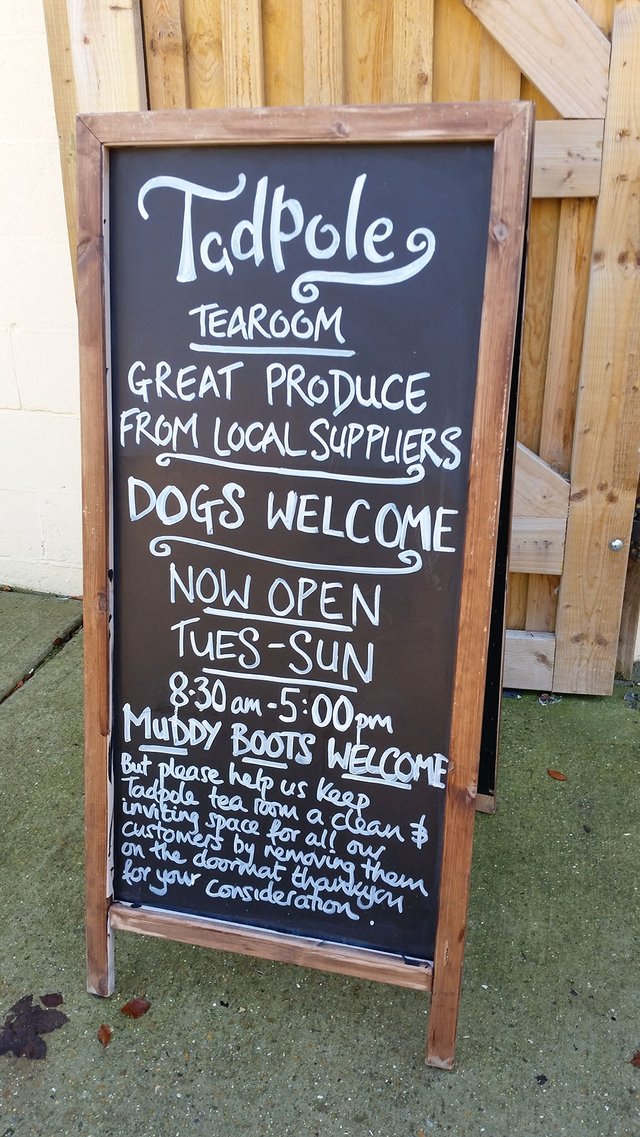 Tadpole
TEAROOM
GREAT PRODUCE
FROM LOCAL SUPPLIERS
DOGS WELCOME
NOW OPEN
TUES-SUN
8.30 am - 5:00pm
MUDDY BOOTS WELCOME
But please help us keep
Tadpole tea room a clean &
inviting space for all our
customers by removing them
on the doormat thankyou
for your consideration.